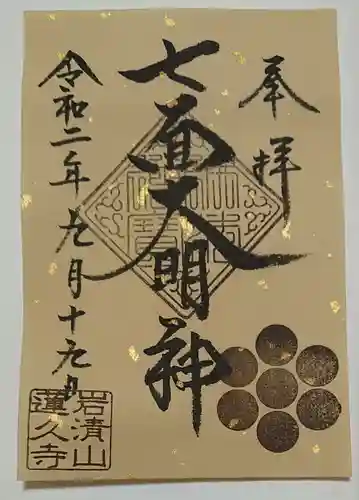 奉拝
七面大明神
令和二年九月十九日
岩清山
蓮久寺